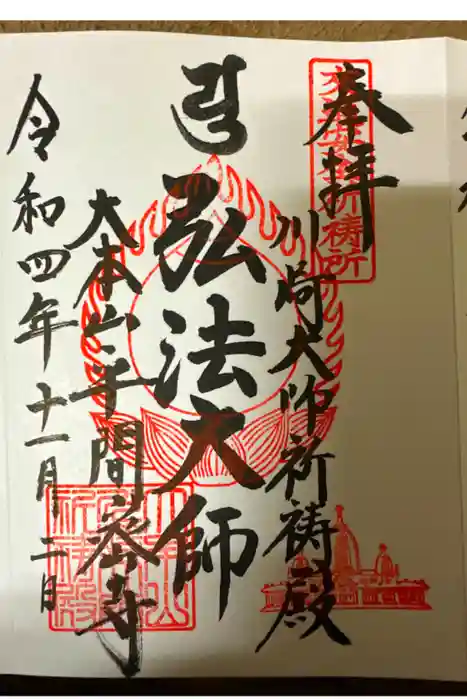 奉拝
交通安全祈祷所
川崎大師祈祷殿
弘法大師
大本山平間寺
令和四年十一月二日